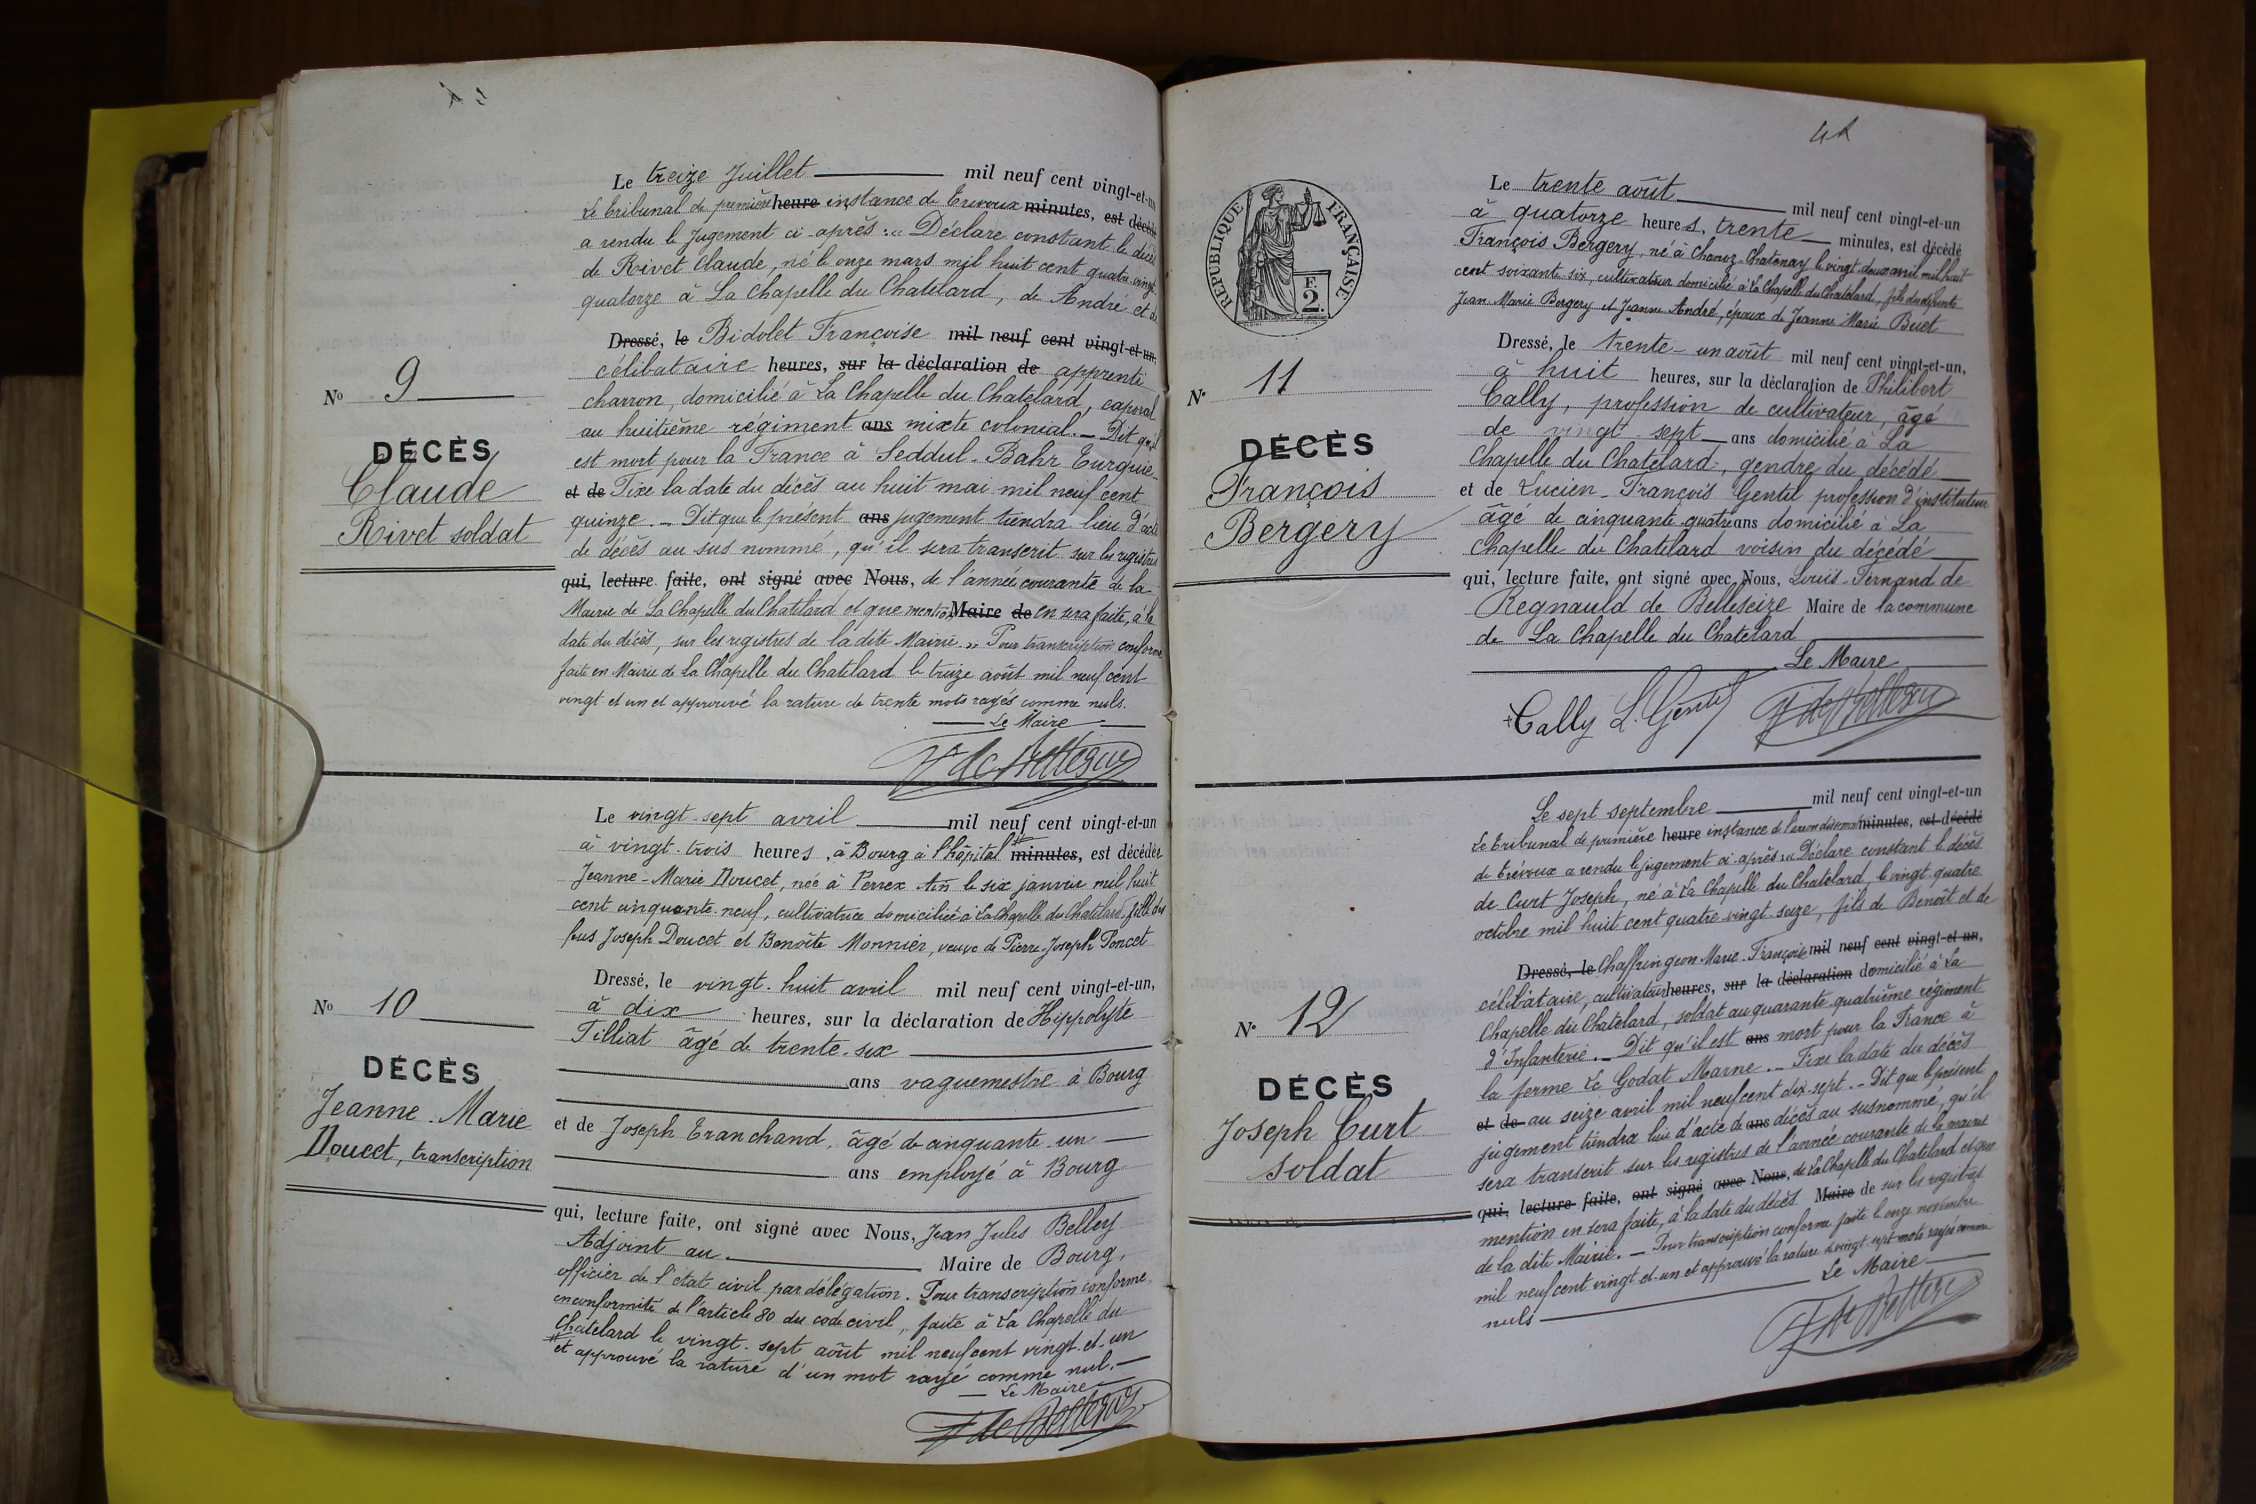 Le treize Juillet mil neuf cent vingt-et-un
Le tribunal de première heure instance de Trévoux minutes, est décédé
a rendu le Jugement ci-après : « Déclare constant le décès
de Rivet Claude, né le onze mars mil huit cent quatre vingt
quatorze à La Chapelle du Chatelard, de André et de
Dressé, le Bidolet Françoise mil neuf cent vingt-et-un,
célibataire heures, sur la déclaration de apprenti
charron, domicilié à La Chapelle du Chatelard, caporal
au huitième régiment ans mixte colonial. _ Dit qu'il
est mort pour la France à Seddul-Bahr Turquie
et de Fixe la date du décès au huit mai mil neuf cent
quinze. _ Dit que le présent ans jugement tiendra lieu d'acte
de décès au sus nommé, qu'il sera transcrit sur les registres
qui, lecture faite, ont signé avec Nous, de l'année courante de la
Mairie de La Chapelle du Chatelard et que mention Maire de en sera faite, à la
date du décès, sur les registres de la dite Mairie. » Pour transcription conforme
faite en Mairie de La Chapelle du Chatelard le treize août mil neuf cent
vingt et un et approuvé la rature de trente mots rayés comme nuls.
Le Maire
No 9
DÉCÈS
Claude
Rivet soldat
Le vingt-sept avril mil neuf cent vingt-et-un
à vingt-trois heures, à Bourg à l'hôpital minutes, est décédée
Jeanne-Marie Doucet, née à Perrex Ain le six janvier mil huit
cent cinquante-neuf, cultivatrice domiciliée à La Chapelle du Chatelard, fille des
feus Joseph Doucet et Benoîte Monnier, veuve de Pierre-Joseph Poncet
Dressé, le vingt-huit avril mil neuf cent vingt-et-un,
à dix heures, sur la déclaration de Hippolyte
Tilliat âgé de trente-six
ans vaguemestre à Bourg
et de Joseph Tranchand, âgé de cinquante-un
ans employé à Bourg
qui, lecture faite, ont signé avec Nous, Jean Jules Belley
Adjoint au Maire de Bourg,
officier de l'état civil par délégation. Pour transcription conforme,
en conformité de l'article 80 du code civil, faite à La Chapelle du
Chatelard le vingt-sept août mil neuf cent vingt-et-un
et approuvé la rature d'un mot rayé comme nul.
Le Maire
No 10
DÉCÈS
Jeanne-Marie
Doucet, transcription
RÉPUBLIQUE FRANÇAISE
F.
2.
Le trente août mil neuf cent vingt-et-un
à quatorze heures, trente minutes, est décédé
François Bergery, né à Chanoz-Chatenay le vingt-deux avril mil huit
cent soixante-six, cultivateur domicilié à La Chapelle du Chatelard, fils des défunts
Jean-Marie Bergery et Jeanne André, époux de Jeanne Marie Buet
Dressé, le trente-un août mil neuf cent vingt-et-un,
à huit heures, sur la déclaration de Philibert
Cally, profession de cultivateur, âgé
de vingt sept ans domicilié à La
Chapelle du Chatelard, gendre du décédé
et de Lucien-François Gentil profession d'instituteur
âgé de cinquante quatre ans domicilié à La
Chapelle du Chatelard voisin du décédé
qui, lecture faite, ont signé avec Nous, Louis-Fernand de
Regnauld de Belleseize Maire de la commune
de La Chapelle du Chatelard
Le Maire
Cally L. Gentil
No 11
DÉCÈS
François
Bergery
Le sept septembre mil neuf cent vingt-et-un
Le Tribunal de première heure instance de l'arrondissement minutes, est décédé
de Trévoux a rendu le jugement ci-après : « Déclare constant le décès
de Curt Joseph, né à La Chapelle du Chatelard, le vingt quatre
octobre mil huit cent quatre vingt seize, fils de Benoît et de
Dressé, le Chaffringeon Marie-Françoise mil neuf cent vingt-et-un,
célibataire, cultivateur heures, sur la déclaration domicilié à La
Chapelle du Chatelard, soldat au quarante quatrième régiment
d'Infanterie. _ Dit qu'il est ans mort pour la France à
la ferme Le Godat Marne. _ Fixe la date du décès
et de au seize avril mil neuf cent dix-sept. _ Dit que le présent
jugement tiendra lieu d'acte de ans décès au susnommé, qu'il
sera transcrit sur les registres de l'année courante de la mairie
qui, lecture faite, ont signé avec Nous, de La Chapelle du Chatelard et que
mention en sera faite, à la date du décès Maire de sur les registres
de la dite Mairie. _ Pour transcription conforme faite le onze novembre
mil neuf cent vingt-et-un et approuvé la rature de vingt-sept mots rayés comme
nuls
Le Maire
No 12
DÉCÈS
Joseph Curt
soldat